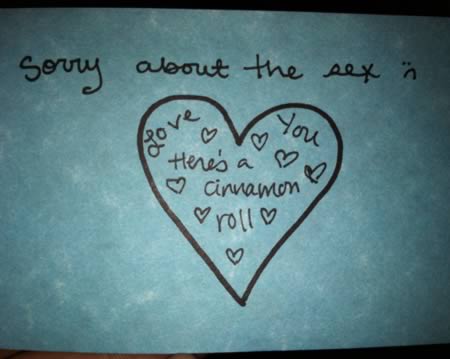 Sorry about the sex :(
Love You
Here's a
cinnamon
roll